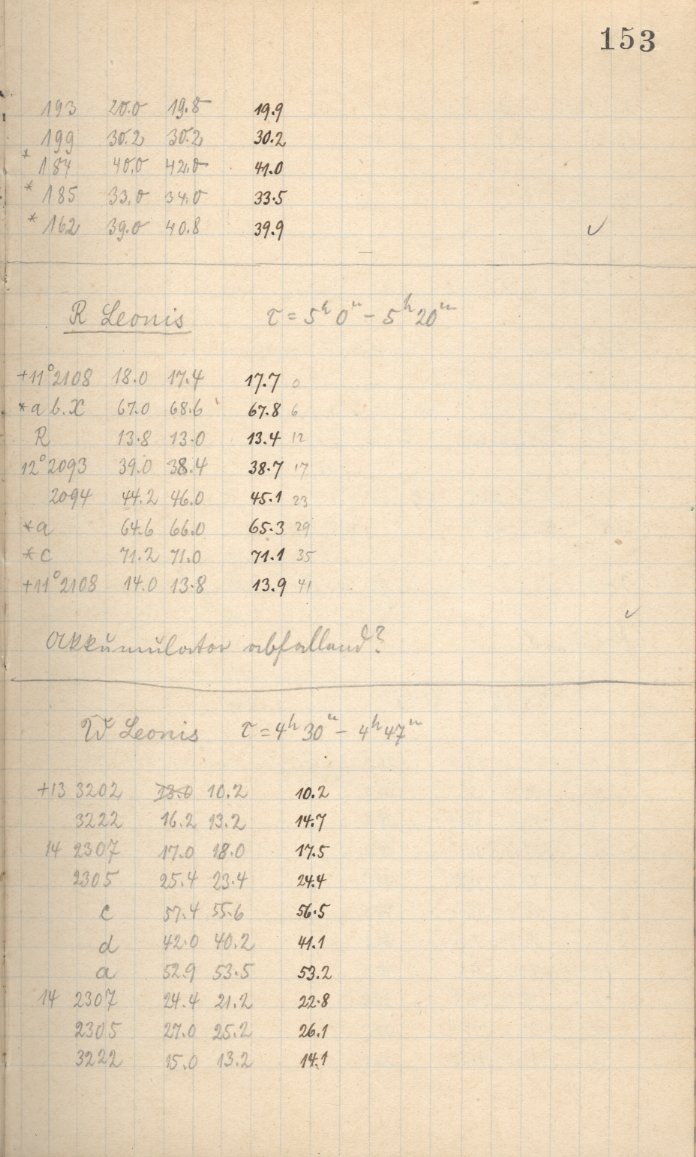 153
193 20.0 19.8 19.9
199 30.2 30.2 30.2
* 184 40.0 42.0 41.0
* 185 33.0 34.0 33.5
* 162 39.0 40.8 39.9 ✓
R Leonis τ = 5ʰ 0ᵐ - 5ʰ 20ᵐ
+11°2108 18.0 17.4 17.7 0
*a b. X 67.0 68.6 67.8 6
R 13.8 13.0 13.4 12
12°2093 39.0 38.4 38.7 17
2094 44.2 46.0 45.1 23
*a 64.6 66.0 65.3 29
*c 71.2 71.0 71.1 35
+11°2108 14.0 13.8 13.9 41
✓
Akkumulator abfallend?
W Leonis τ = 4ʰ 30ᵐ - 4ʰ 47ᵐ
+13 3202 10.2 10.2
3222 16.2 13.2 14.7
14 2307 17.0 18.0 17.5
2305 25.4 23.4 24.4
c 57.4 55.6 56.5
d 42.0 40.2 41.1
a 52.9 53.5 53.2
14 2307 24.4 21.2 22.8
2305 27.0 25.2 26.1
3222 15.0 13.2 14.1